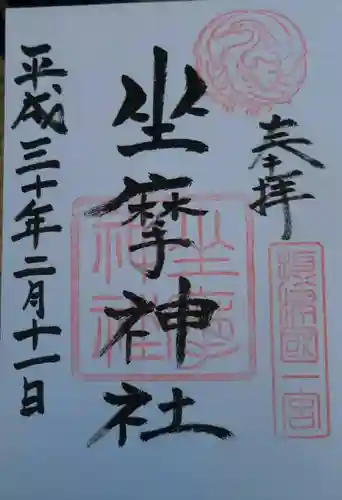 奉拝
摂津国一宮
坐摩神社
坐摩神社
平成三十年二月十一日